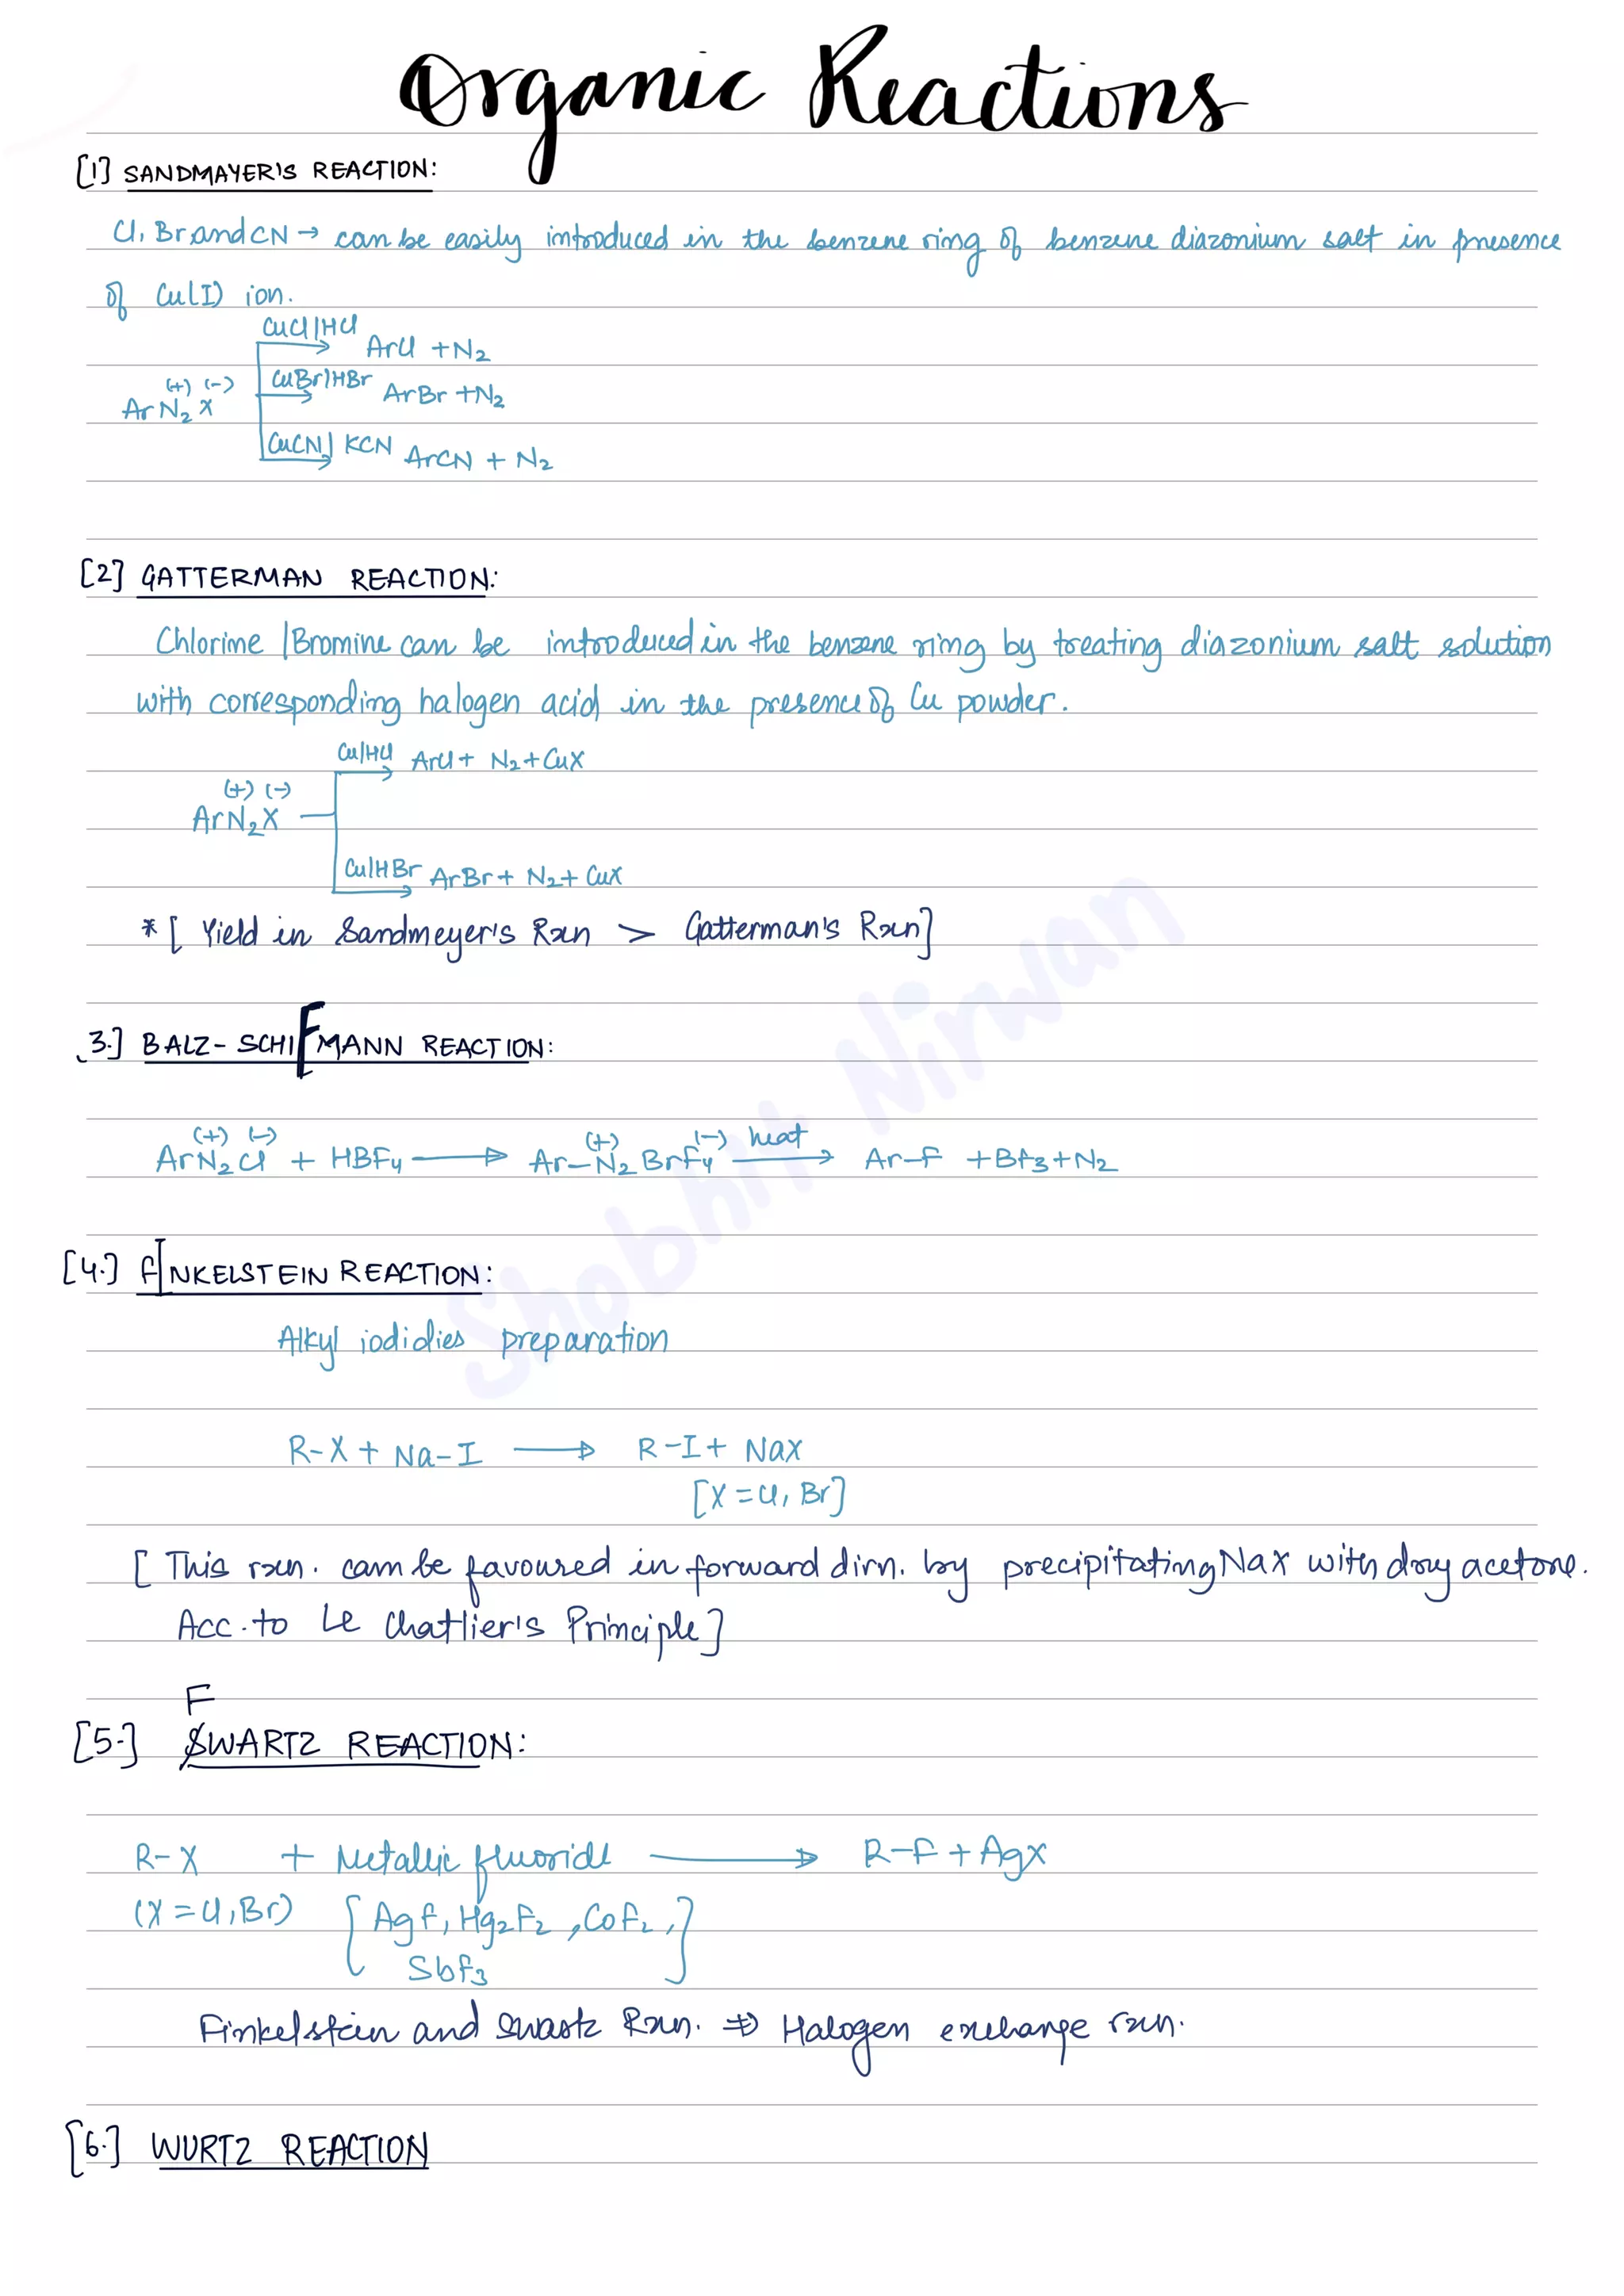 Organic Reactions
[1] SANDMAYER'S REACTION:
Cl, Br and CN → can be easily introduced in the benzene ring of benzene diazonium salt in presence
of Cu(I) ion.
CuCl/HCl
ArCl + N2
(+) (-)
CuBr/HBr
ArBr + N2
ArN2X
CuCN/KCN
ArCN + N2
[2] GATTERMAN REACTION:
Chlorine / Bromine can be introduced in the benzene ring by treating diazonium salt solution
with corresponding halogen acid in the presence of Cu powder.
Cu/HCl ArCl + N2 + CuX
(+) (-)
ArN2X
Cu/HBr ArBr + N2 + CuX
* [ Yield in Sandmeyer's Rxn > Gatterman's Rxn]
3.] BALZ-SCHIFMANN REACTION:
(+) (-) (+) (-) heat
ArN2Cl + HBF4 → Ar-N2BrF4 → Ar-F + BF3 + N2
[4.] FINKELSTEIN REACTION:
Alkyl iodidies preparation
R-X + Na-I → R-I + NaX
[X = Cl, Br]
[ This rxn. can be favoured in forward dirn. by precipitating NaX with dry acetone.
Acc. to Le Chatlier's Principle]
F
[5.] SWARTZ REACTION:
R-X + Metallic fluoride → R-F + AgX
(X = Cl, Br) [AgF, Hg2F2, CoF2,
SbF3]
Finkelstein and Swartz Rxn. ⇒ Halogen exchange rxn.
[6.] WURTZ REACTION
Shobhit Nirwan